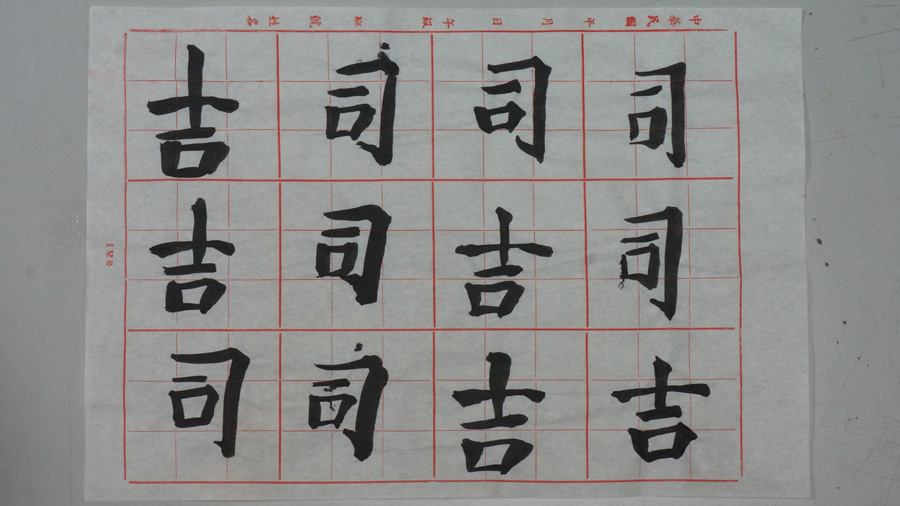 中華民國 年 月 日 年級 班 號 姓名
司司吉
司吉吉
司司司
吉吉司